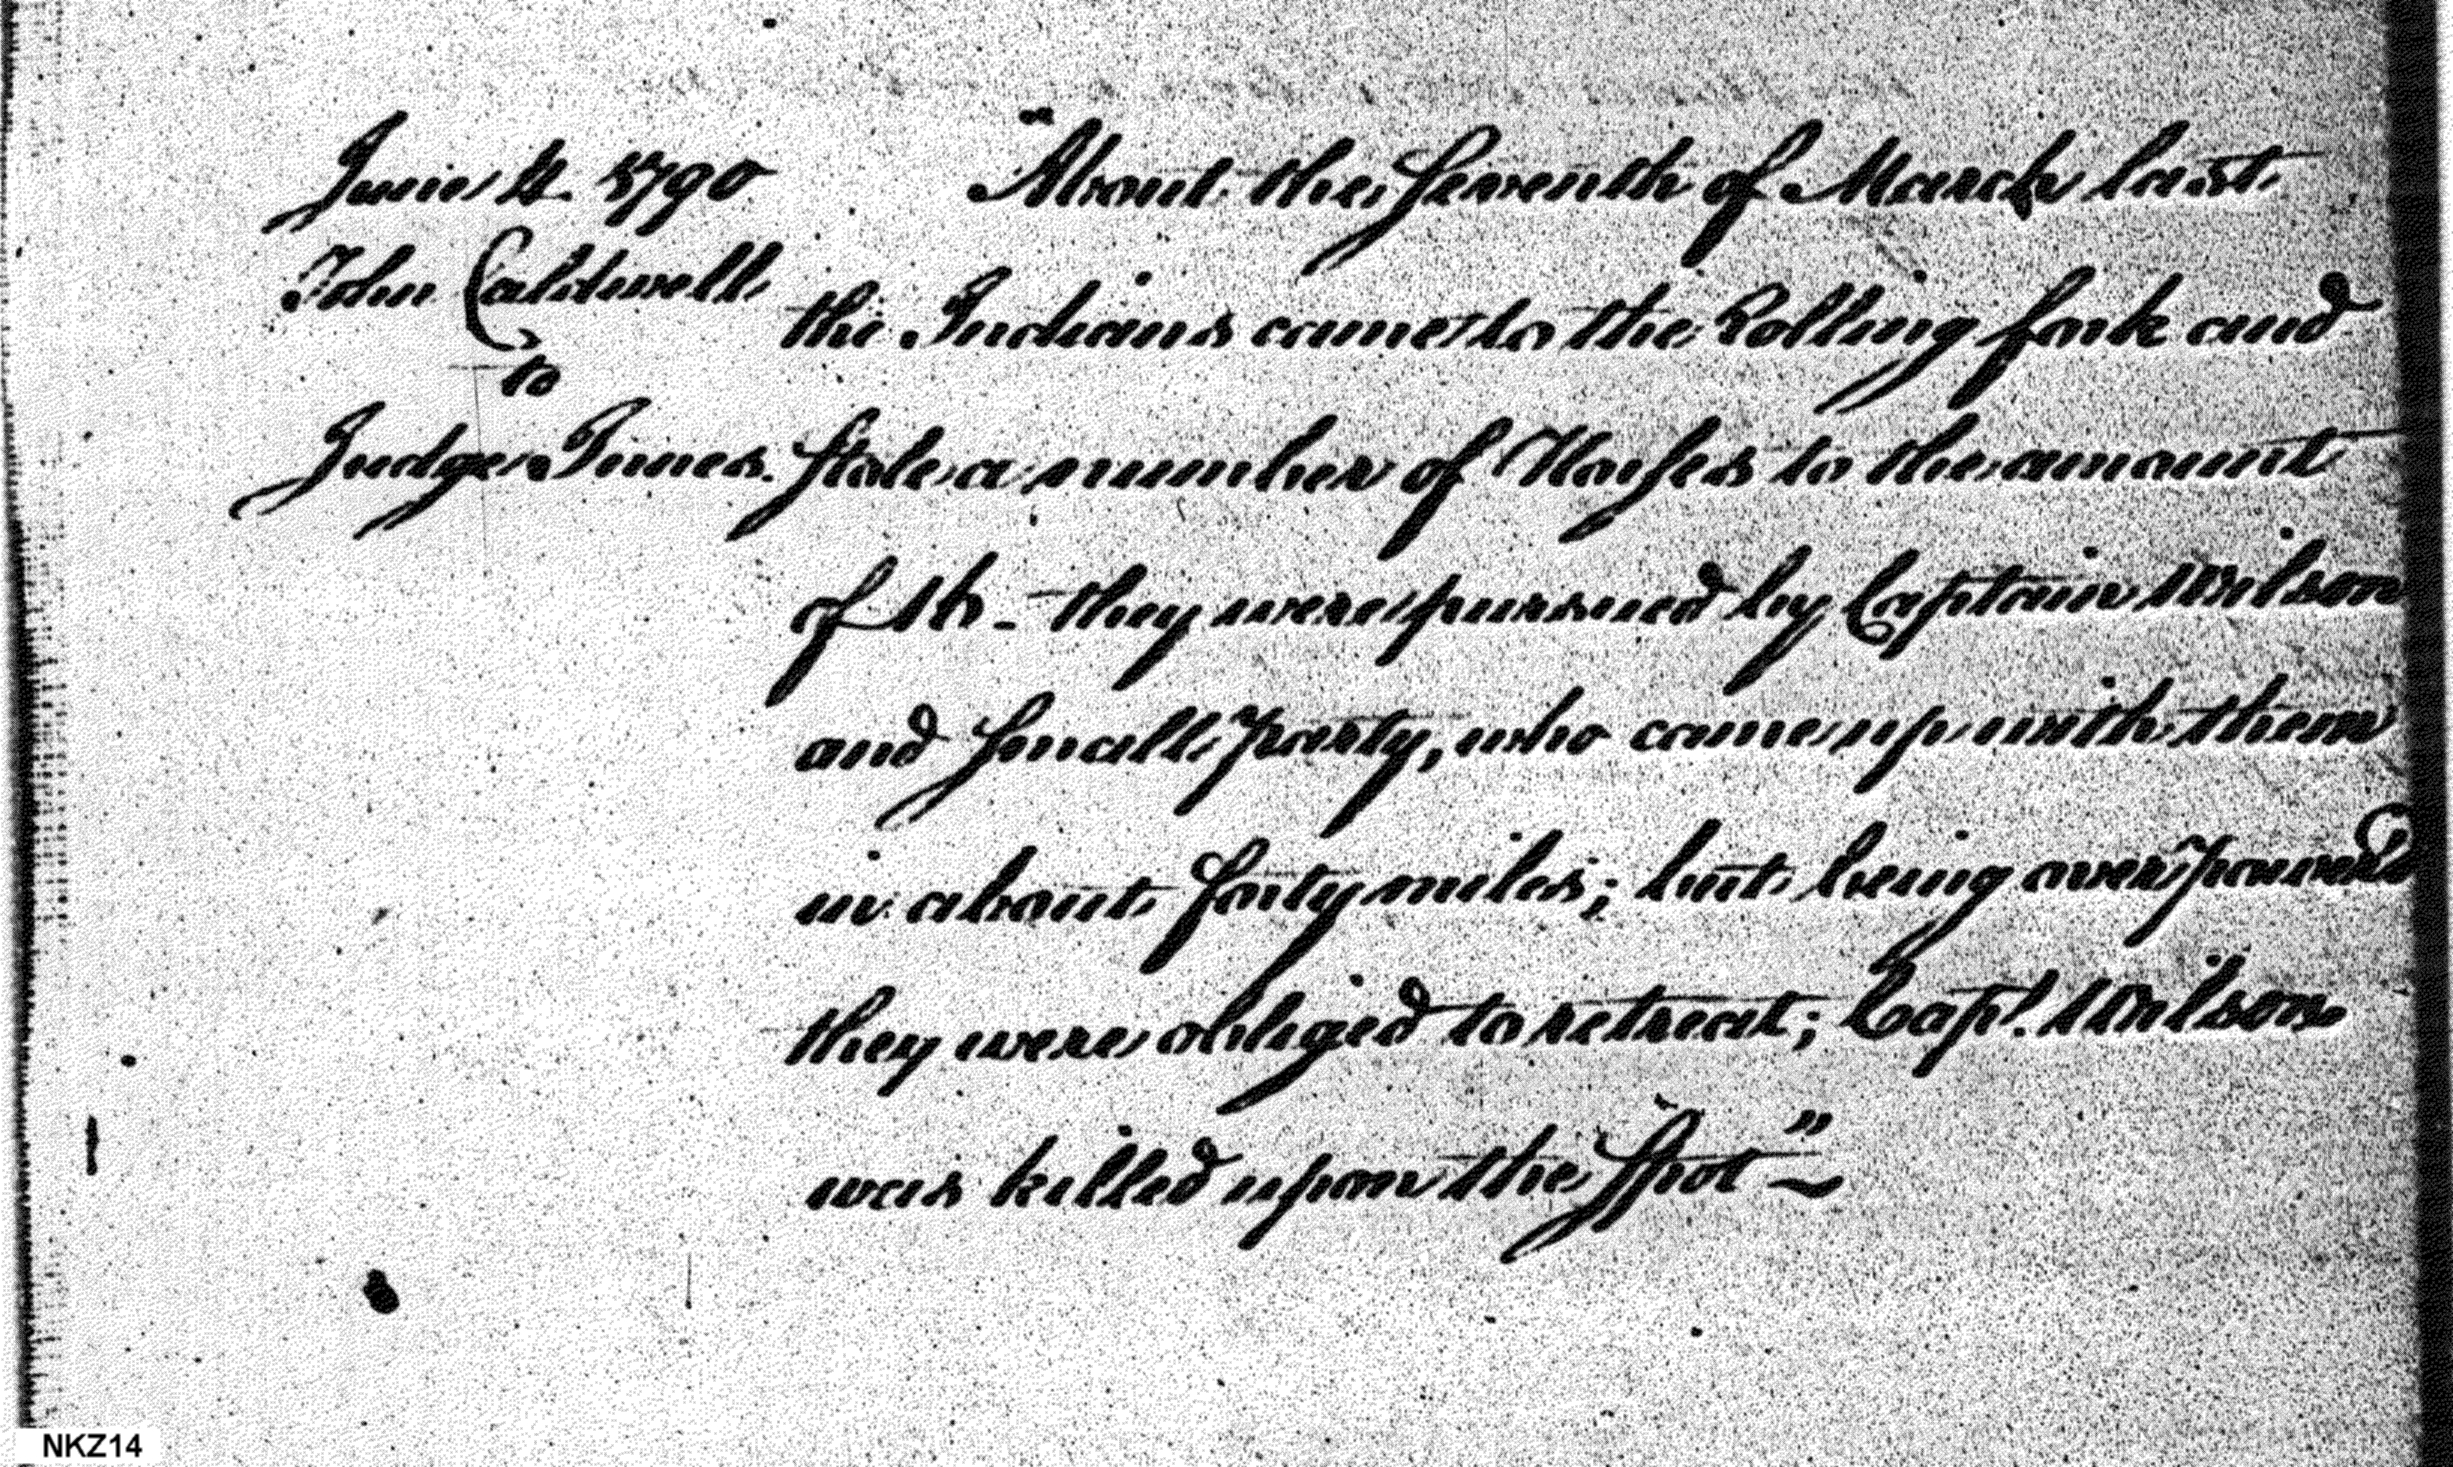 June 4. 1790
John Caldwell
to
Judge Innes.
"About the seventh of March last
the Indians came to the Rolling fork and
stole a number of Horses to the amount
of 16 - they were pursued by Captain Wilson
and small party, who came up with them
in about forty miles; but being overpowered
they were obliged to retreat; Capt. Wilson
was killed upon the spot"
NKZ14